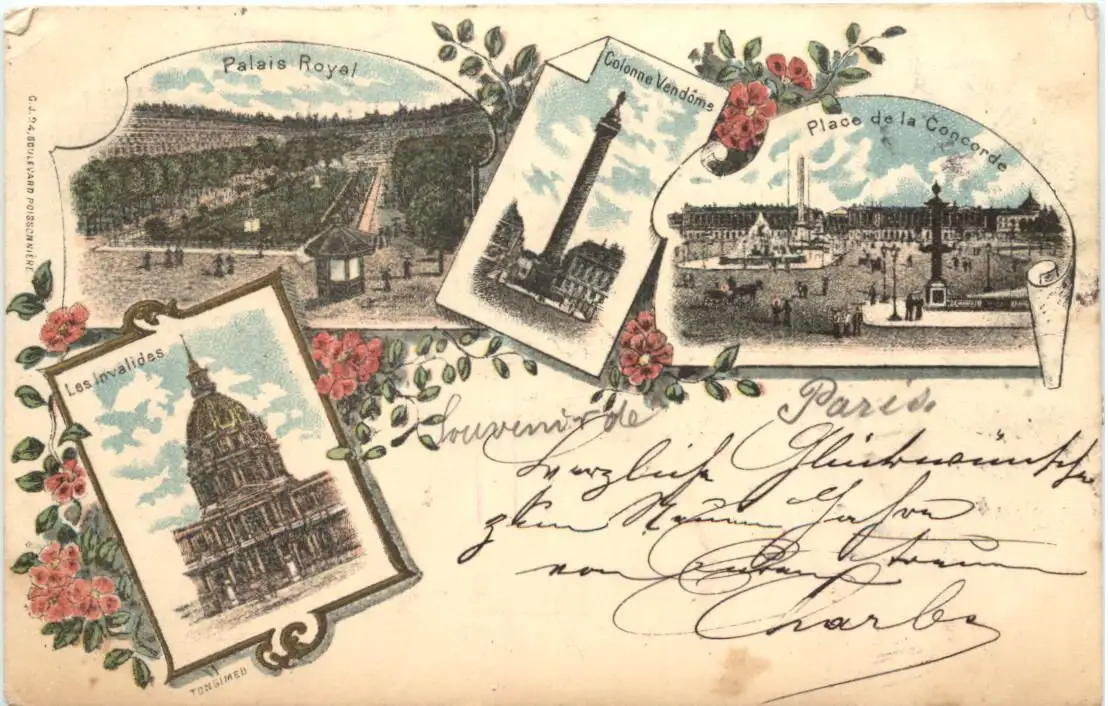 Palais Royal
Colonne Vendôme
Place de la Concorde
G. J. 24, BOULEVARD POISSONNIÈRE
Les Invalides
Souvenir de Paris.
Herzliche Glückwünsche
zum Neuen Jahre
von
Charles
TONGIMED